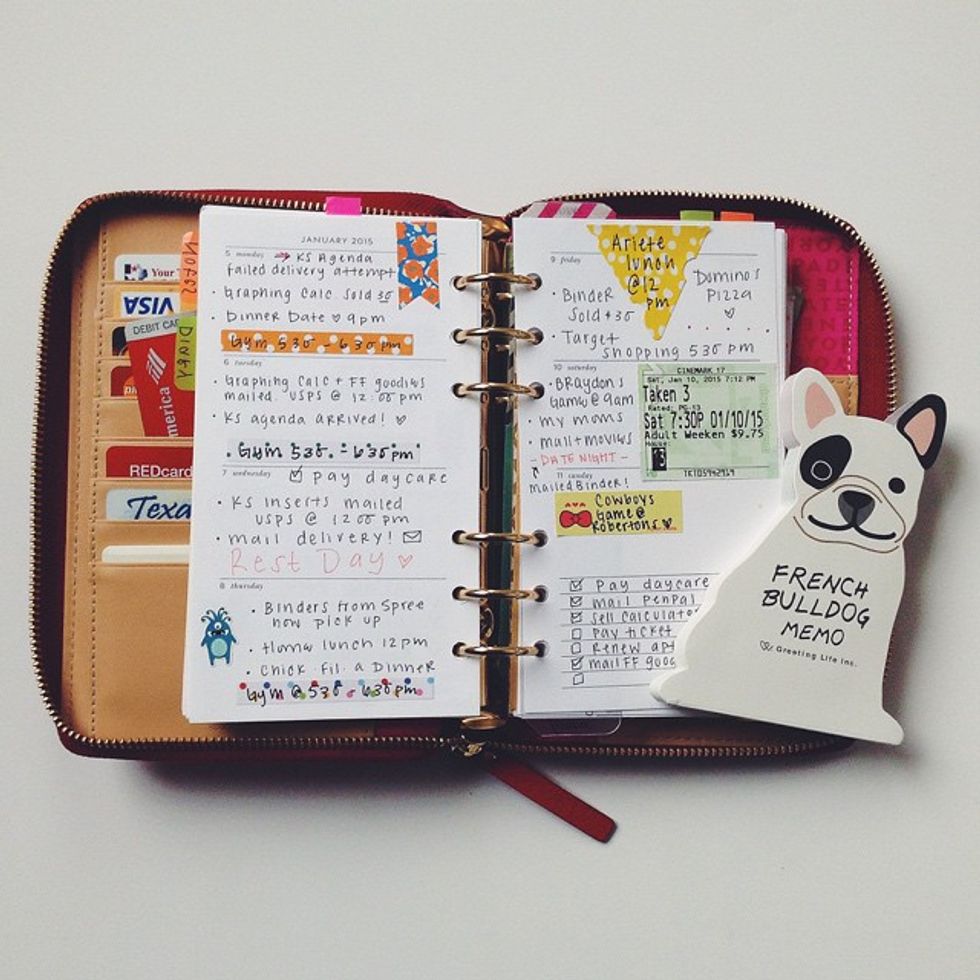 Your T
VISA
DEBIT CARD
merica
REDcard
Texa
NOTES
DINER
JANUARY 2015
5 monday
KS Agenda
failed delivery attempt
Graphing Calc Sold 30
Dinner Date 9pm
Gym 530 - 630pm
6 tuesday
Graphing Calc + FF goodies
mailed. USPS @ 12:00pm
KS agenda arrived!
Gym 530 - 630pm
7 wednesday
pay daycare
KS inserts mailed
USPS @ 1200pm
mail delivery!
Rest Day
8 thursday
Binders from Spree
now pick up
lunch 12pm
Chick fil a Dinner
Gym @ 530 - 630pm
9 friday
Ariete
lunch
@12
pm
Dominos
Pizza
Binder
Sold $30
Target
shopping 530pm
10 saturday
Braydons
Game @ 9am
my moms
mall + movies
- DATE NIGHT -
CINEMARK 17
Sat, Jan 10, 2015 7:12 PM
Taken 3
Rated: PG-13
Sat 7:30P 01/10/15
Adult Weeken $9.75
House:
13
11 sunday
mailed Binder!
Cowboys
Game @
Robertons
pay daycare
mail penpal
sell calculator
pay ticket
Renew
mail FF
FRENCH
BULLDOG
MEMO
Greeting Life Inc.